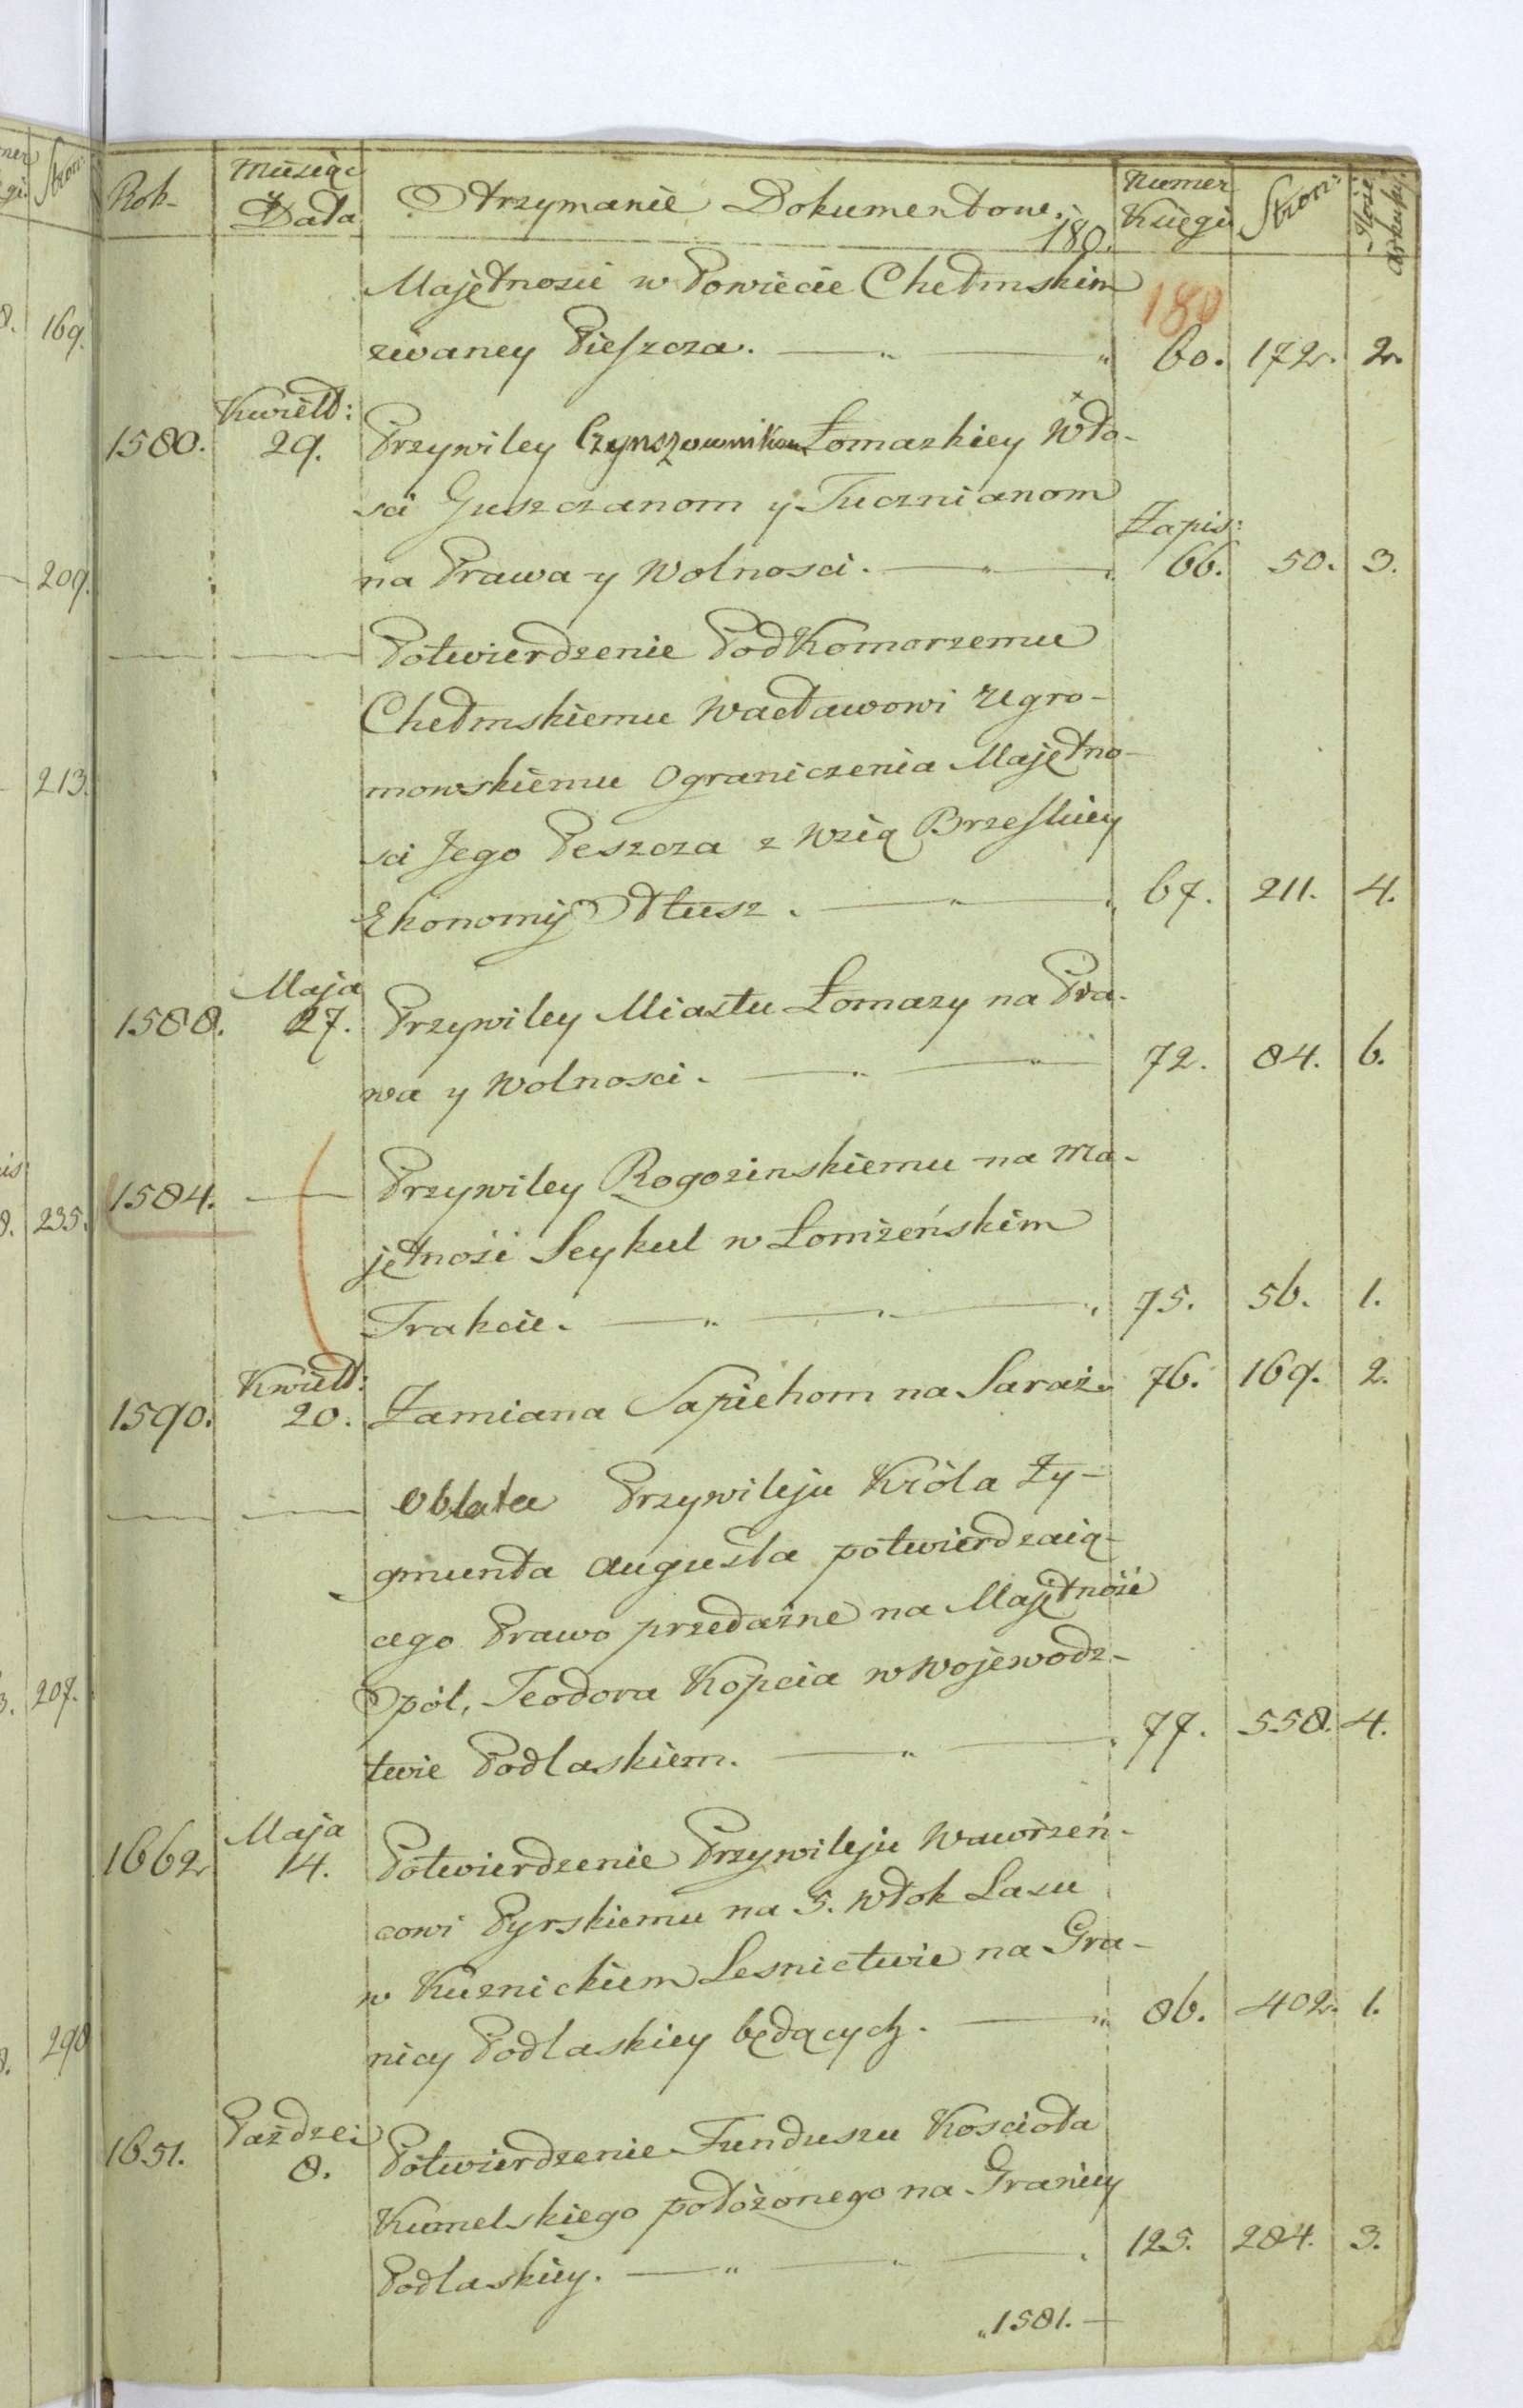 Rok
Miesiąc
Data
Otrzymanie Dokumentow.
180.
Numer
Księgi
Stron:
Ilość
arkuszy.
Majętnosci w Powiecie Chełmskim
180
zwaney Pieszcza. 60. 172. 2.
Kwiet:
1580. 29. Przywiley Czynszownikom Łomazkiey Wło-
sci Guszczanom y Tucznianom
Zapis:
na Prawa y Wolnosci. 66. 50. 3.
Potwierdzenie Podkomorzemu
Chełmskiemu Wacławowi Uhro-
mowskiemu Ograniczenia Majętno-
sci Jego Peszcza z Wsią Brzeskiey
Ekonomij Ortusz. 67. 211. 4.
Maja
1588. 27. Przywiley Miastu Łomazy na Pra-
wa y Wolnosci. 72. 84. 6.
1584. Przywiley Rogozinskiemu na Ma-
jętność Seykul w Łomżeńskim
Trakcie. 75. 56. 1.
Kwiet:
1590. 20. Zamiana Sapiehom na Saraż. 76. 169. 2.
Oblata Przywileju Króla Zy-
gmunta Augusta potwierdzaią-
cego Prawo przedażne na Majętność
Opól, Teodora Kopcia w Wojewodz-
twie Podlaskiem. 77. 558. 4.
Maja
1662 14. Potwierdzenie Przywileju Wawrzeń-
cowi Pyrskiemu na 5. Włok Lasu
w Kuznickiem Lesnictwie na Gra-
nicy Podlaskiey będących. 86. 402. 1.
Paździer
1651. 8. Potwierdzenie Funduszu Kościoła
Kumelskiego położonego na Granicy
Podlaskiey. 125. 284. 3.
1581.
169.
209.
213.
235.
207.
290